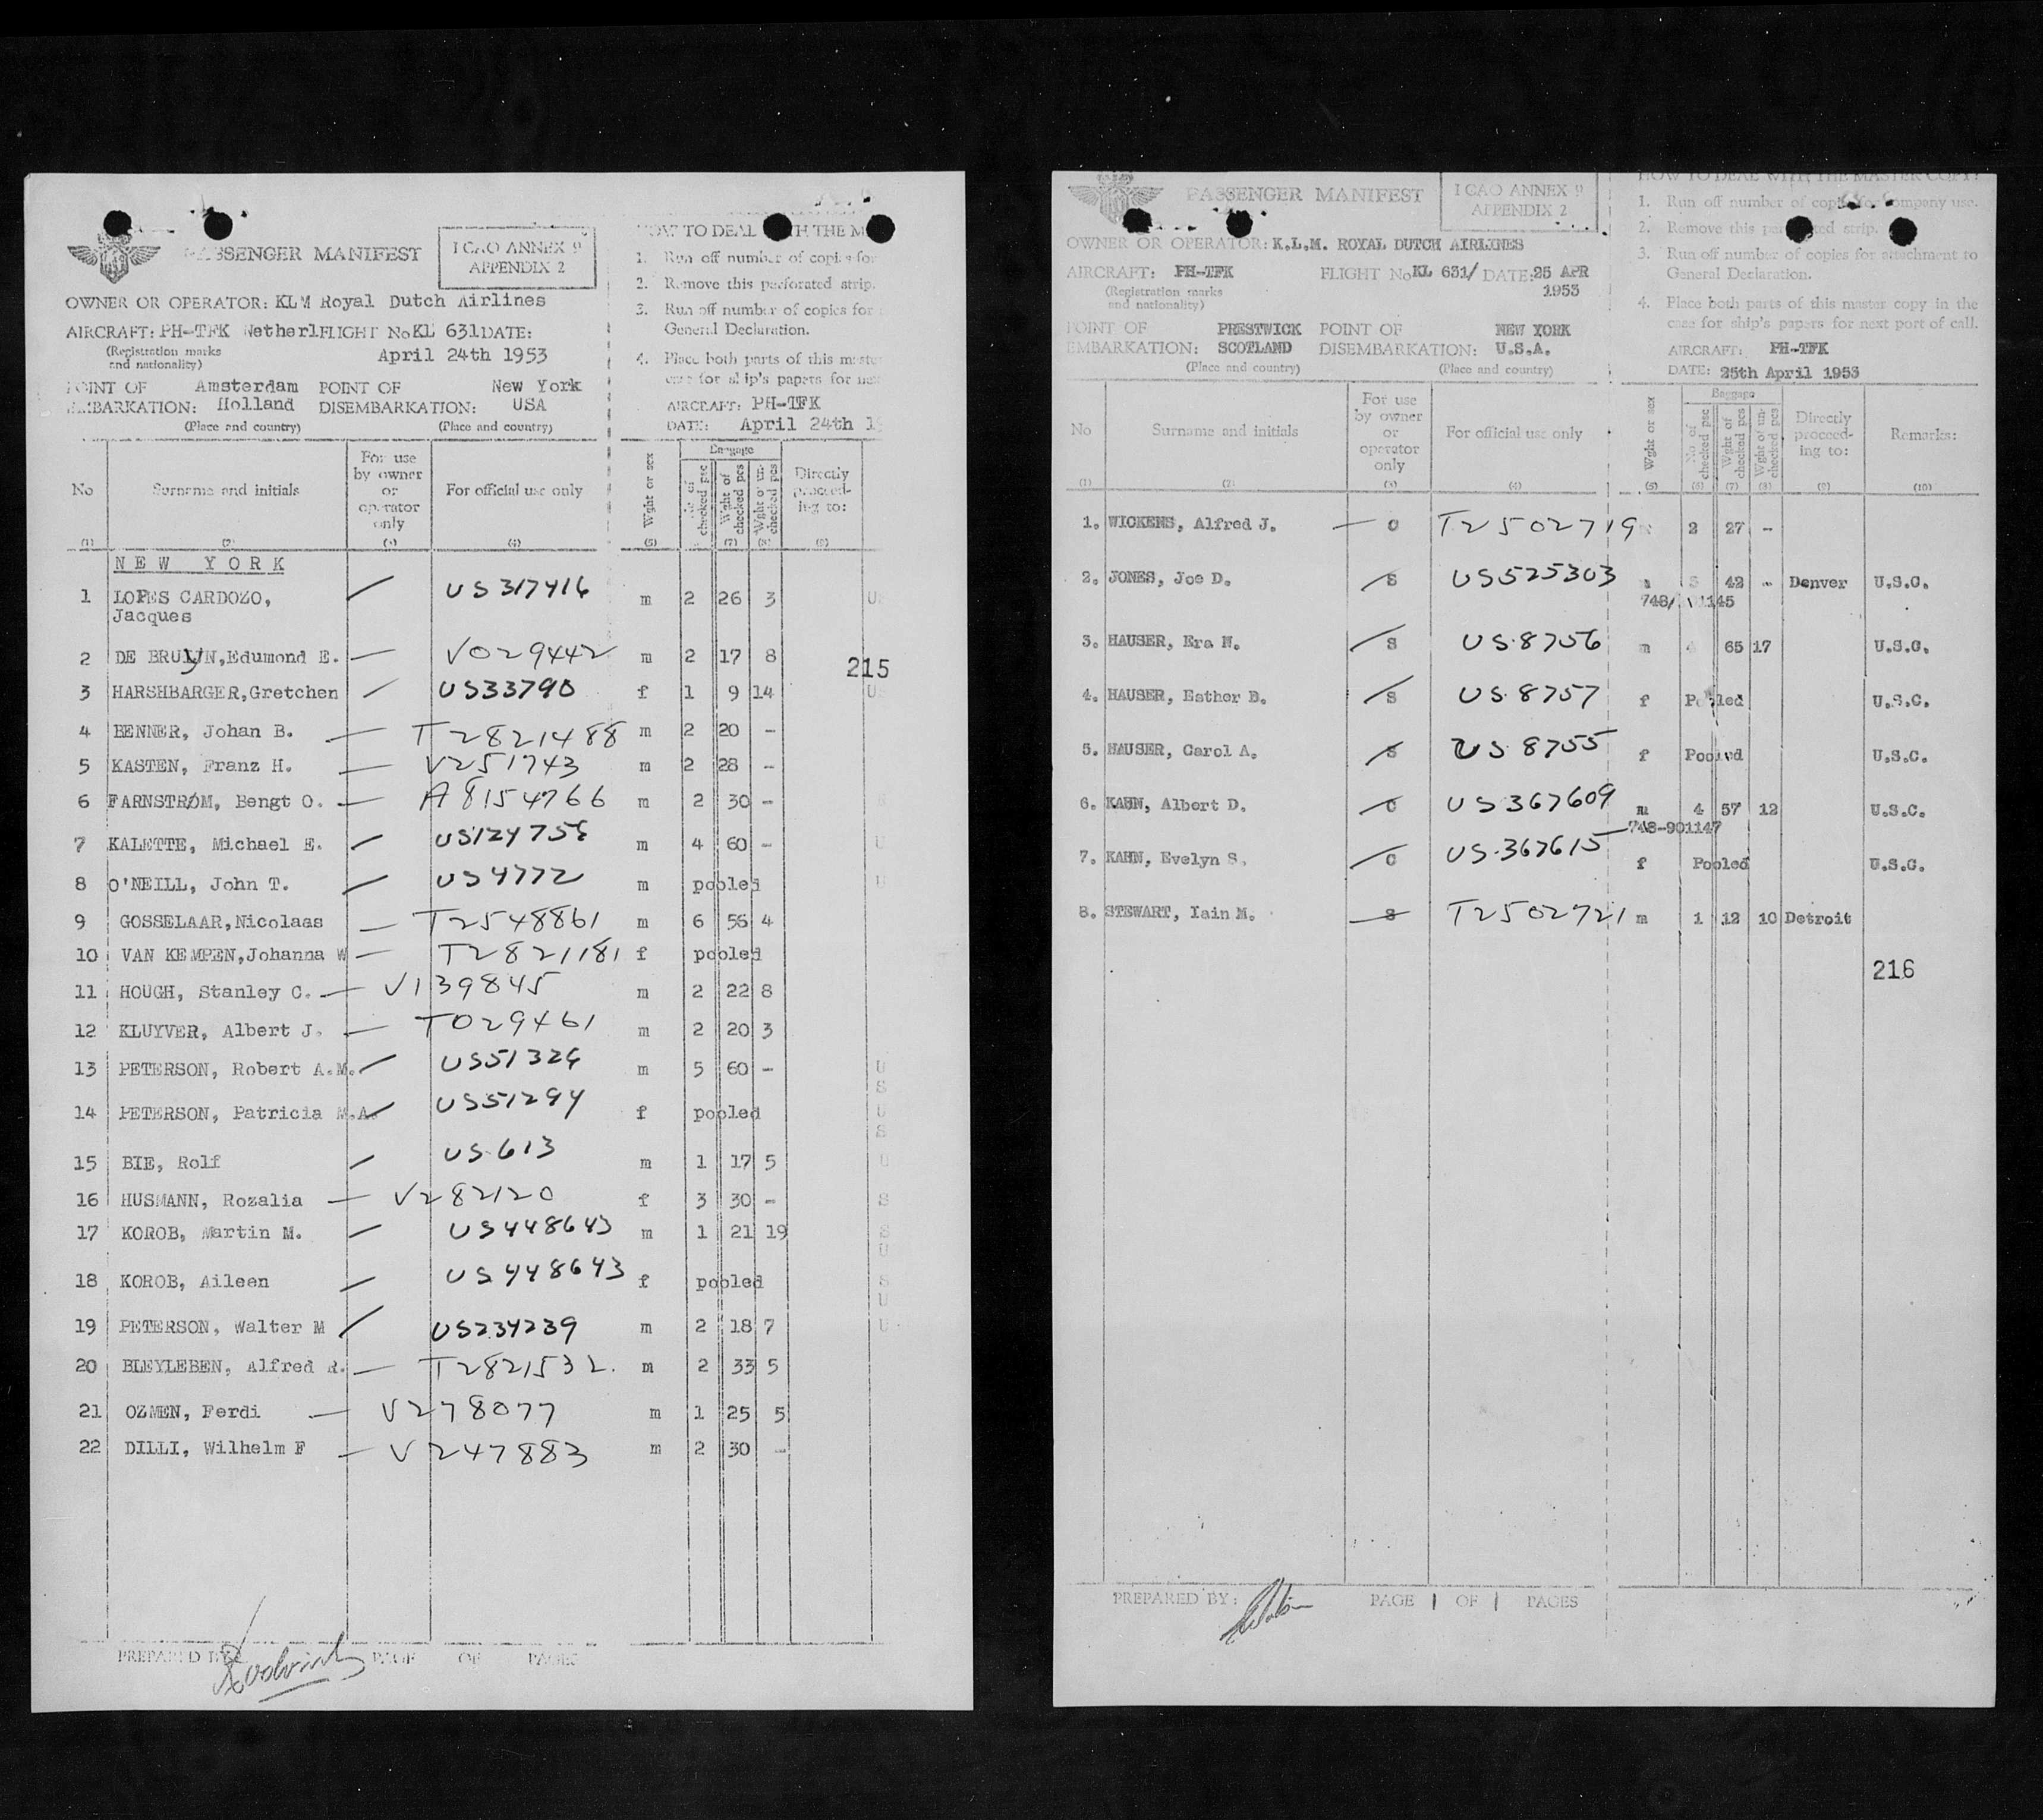 PASSENGER MANIFEST
I CAO ANNEX 9
APPENDIX 2
OWNER OR OPERATOR: KLM Royal Dutch Airlines
AIRCRAFT: PH-TFK Netherl FLIGHT No KL 631 DATE:
(Registration marks
and nationality)
April 24th 1953
POINT OF Amsterdam POINT OF New York
EMBARKATION: Holland DISEMBARKATION: USA
(Place and country) (Place and country)
HOW TO DEAL WITH THE M
1. Run off number of copies for
2. Remove this perforated strip.
3. Run off number of copies for
General Declaration.
4. Place both parts of this master
case for ship's papers for
AIRCRAFT: PH-TFK
DATE: April 24th 1
No
Surname and initials
For use
by owner
or
operator
only
For official use only
Wght or sex
Baggage
No of
checked psc
Wght of
checked pcs
Wght of un-
checked pcs
Directly
proceed-
ing to:
(1) (2) (3) (4) (5) (7) (8) (9)
NEW YORK
1 LOPES CARDOZO, Jacques US 317416 m 2 26 3
2 DE BRUYN, Edumond E. — V029442 m 2 17 8
215
3 HARSHBARGER, Gretchen US33790 f 1 9 14
4 BENNER, Johan B. — T2821488 m 2 20 -
5 KASTEN, Franz H. — V251743 m 2 28 -
6 FARNSTRØM, Bengt O. — A8154766 m 2 30 -
7 KALETTE, Michael E. m 4 60 -
8 O'NEILL, John T. US4772 m pooled
9 GOSSELAAR, Nicolaas — T2548861 m 6 56 4
10 VAN KEMPEN, Johanna W — T2821181 f pooled
11 HOUGH, Stanley C. — V139845 m 2 22 8
12 KLUYVER, Albert J. — T029461 m 2 20 3
13 PETERSON, Robert A.M. m 5 60 -
14 PETERSON, Patricia M.A. US51294 f pooled
15 BIE, Rolf US613 m 1 17 5
16 HUSMANN, Rozalia — V282120 f 3 30 -
17 KOROB, Martin M. US448643 m 1 21 19
18 KOROB, Aileen US448643 f pooled
19 PETERSON, Walter M US234239 m 2 18 7
20 BLEYLEBEN, Alfred R. — T2821532. m 2 33 5
21 OZMEN, Ferdi — V278077 m 1 25 5
22 DILLI, Wilhelm F — V247883 m 2 30 -
PREPARED BY: PAGE OF PAGES
PASSENGER MANIFEST
I CAO ANNEX 9
APPENDIX 2
OWNER OR OPERATOR: K.L.M. ROYAL DUTCH AIRLINES
AIRCRAFT: PH-TFK FLIGHT No KL 631/ DATE: 25 APR
1953
(Registration marks
and nationality)
POINT OF PRESTWICK POINT OF NEW YORK
EMBARKATION: SCOTLAND DISEMBARKATION: U.S.A.
(Place and country) (Place and country)
HOW TO DEAL WITH THE MASTER COPY:
1. Run off number of copies for company use.
2. Remove this perforated strip.
3. Run off number of copies for attachment to
General Declaration.
4. Place both parts of this master copy in the
case for ship's papers for next port of call.
AIRCRAFT: PH-TFK
DATE: 25th April 1953
No
Surname and initials
For use
by owner
or
operator
only
For official use only
Wght or sex
Baggage
No of
checked psc
Wght of
checked pcs
Wght of un-
checked pcs
Directly
proceed-
ing to:
Remarks:
(1) (2) (3) (4) (5) (6) (7) (8) (9) (10)
1. WICKENS, Alfred J. — C T2502719 2 27 -
2. JONES, Joe D. S US525303 42 - Denver U.S.C.
3. HAUSER, Era N. S US8756 m 65 17 U.S.C.
4. HAUSER, Esther B. S US8757 f Pooled U.S.C.
5. HAUSER, Carol A. S US8755 f Pooled U.S.C.
6. KAHN, Albert D. C US367609 m 4 57 12 U.S.C.
748-901147
7. KAHN, Evelyn S. C US367615 f Pooled U.S.C.
8. STEWART, Iain M. S T2502721 m 1 12 10 Detroit
216
PREPARED BY: PAGE 1 OF 1 PAGES